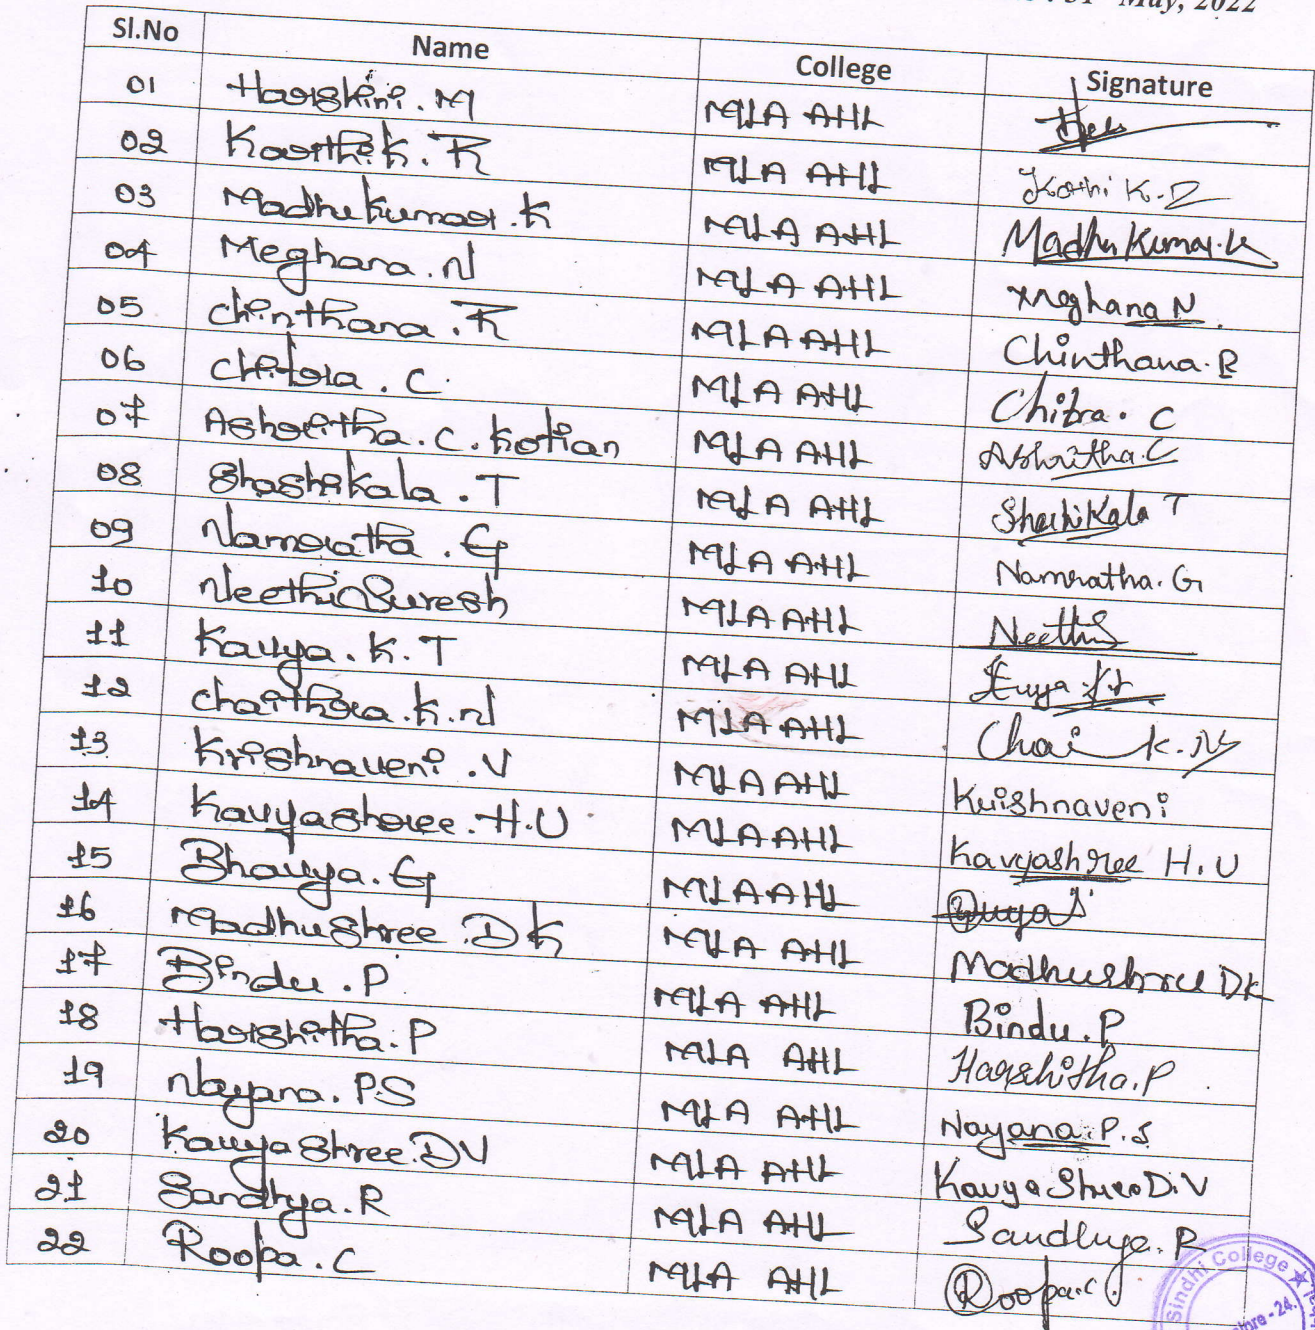 May, 2022
Sl.No Name College Signature
01 Harshini.M MLA AHL
02 Karthik.R MLA AHL Karthi K.R
03 Madhukumar.K MLA AHL Madhu Kumar.K
04 Meghana.N MLA AHL Meghana N.
05 Chinthana.R MLA AHL Chinthana.R
06 Chitra.C MLA AHL Chitra.C
07 Ashritha.C.Kotian MLA AHL Ashritha.C
08 Shashikala.T MLA AHL Shashikala T
09 Namratha.G MLA AHL Namratha.G
10 Neethi Suresh MLA AHL Neethi
11 Kavya.K.T MLA AHL
12 Chaithra.K.N MLA AHL Chai K.N
13 Krishnaveni.V MLA AHL Krishnaveni
14 Kavyashree.H.U MLA AHL Kavyashree H.U
15 Bhavya.G MLA AHL
16 Madhushree.DK MLA AHL Madhushree DK
17 Bindu.P MLA AHL Bindu.P
18 Harshitha.P MLA AHL Harshitha.P
19 Nayana.PS MLA AHL Nayana.P.S
20 Kavyashree.DV MLA AHL Kavya Shree D.V
21 Sandhya.R MLA AHL Sandhya.R
22 Roopa.C MLA AHL Roopa.C
Sindhi College
- 24.